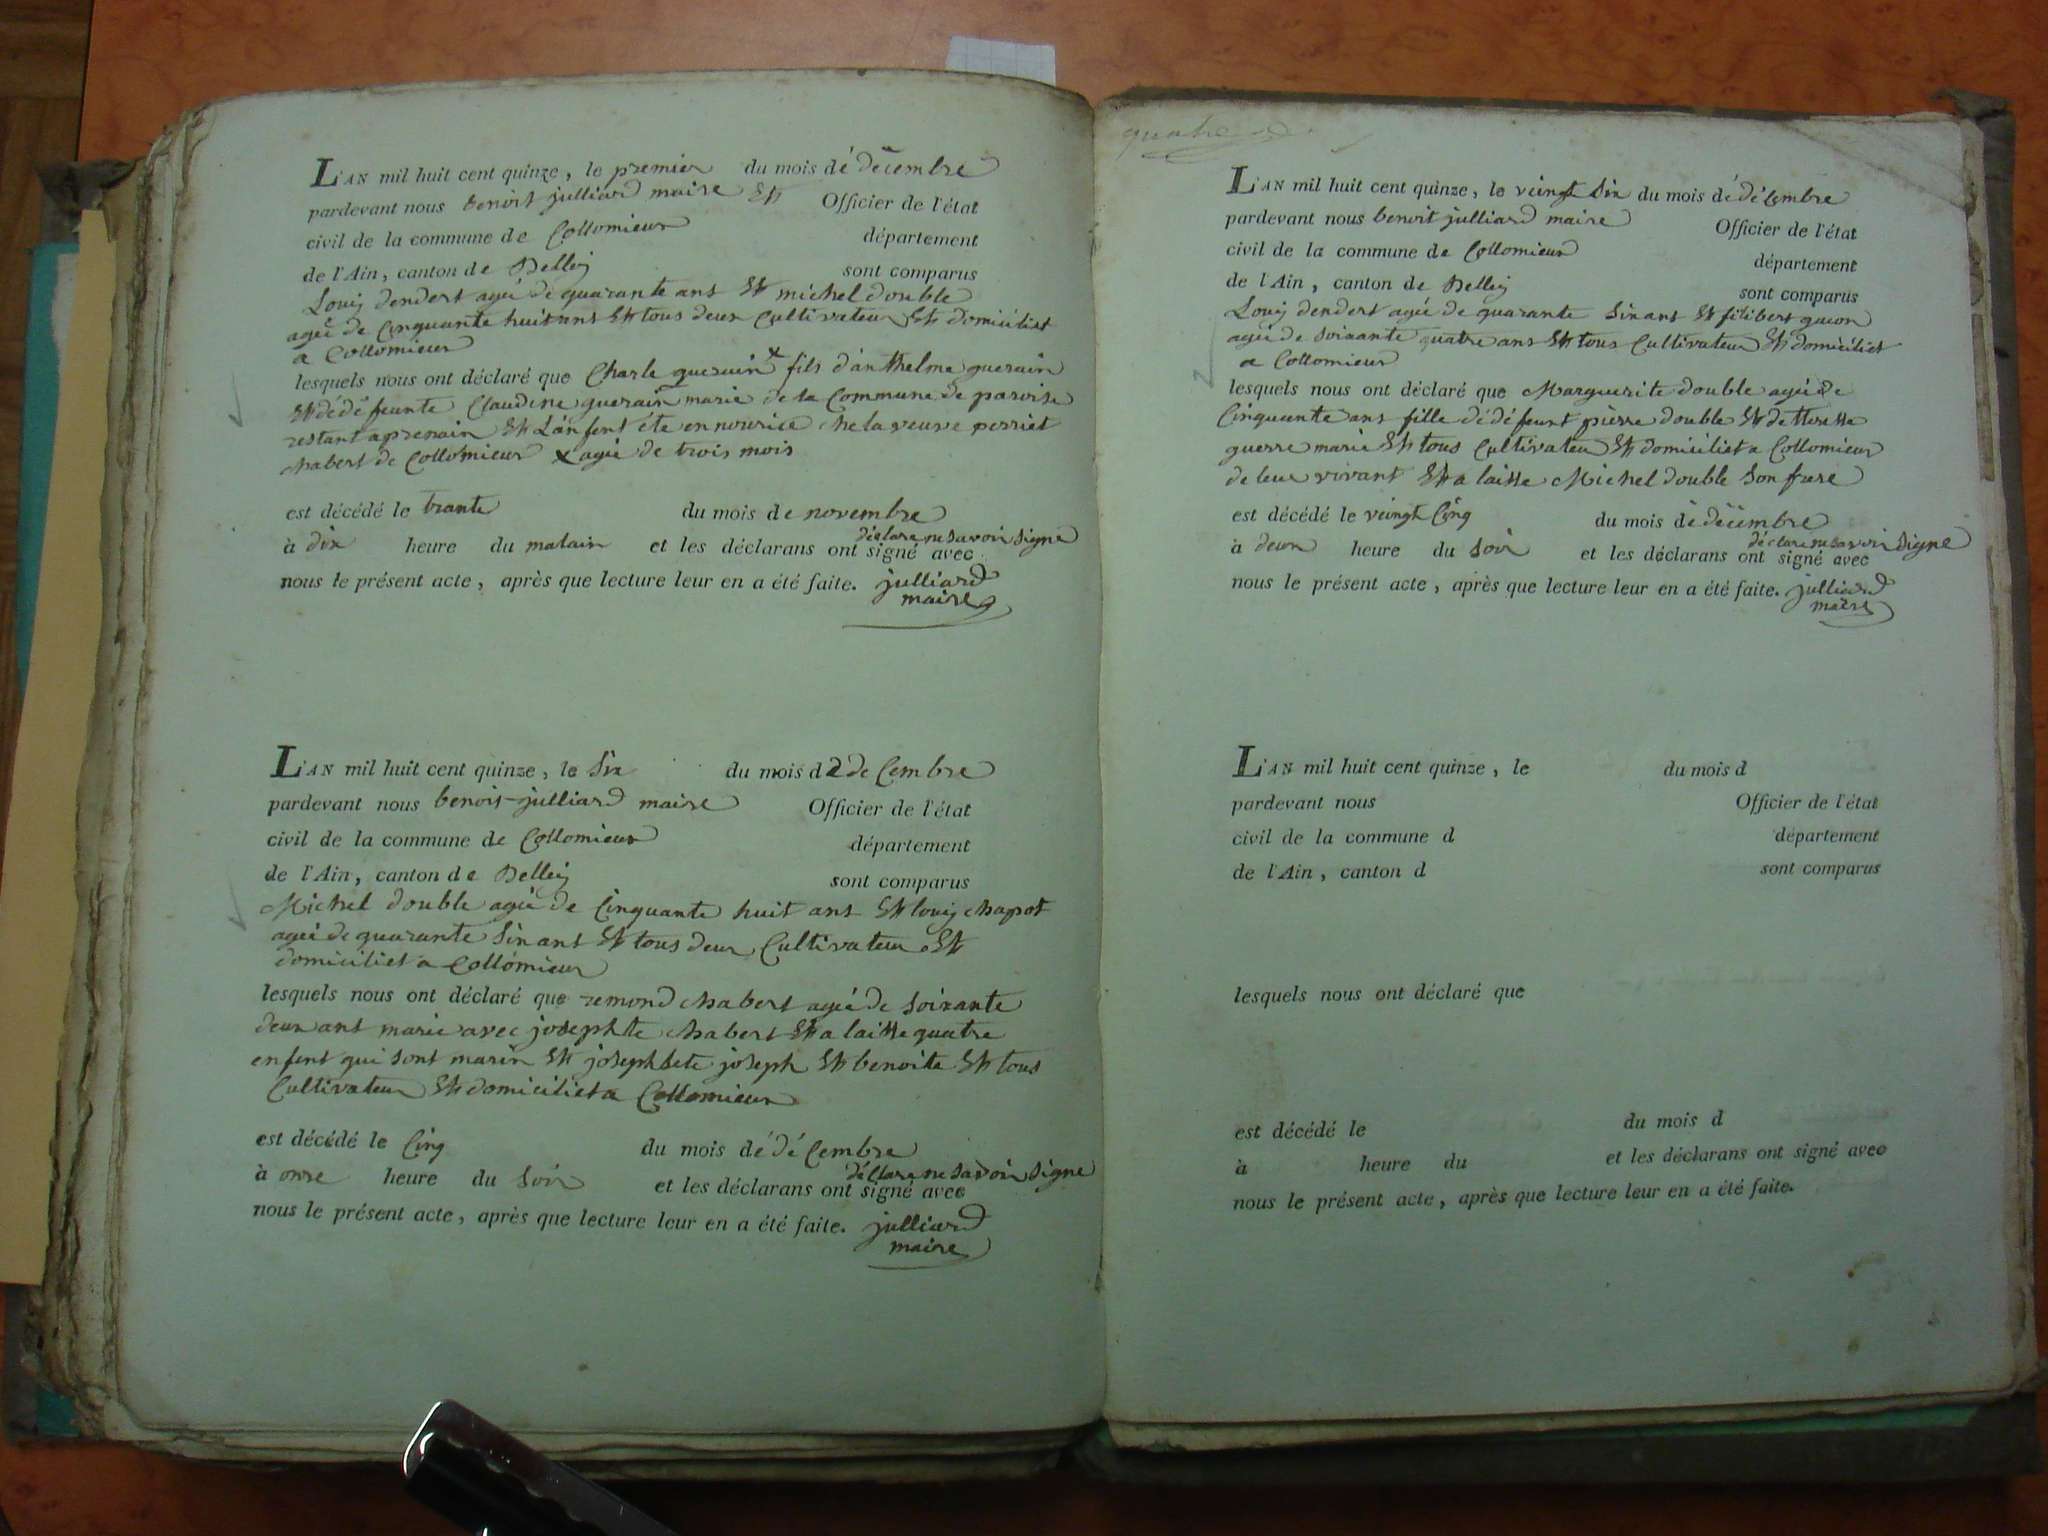 L'AN mil huit cent quinze, le premier du mois dé décembre
pardevant nous benoit julliard maire Et Officier de l'état
civil de la commune de Collomieux département
de l'Ain, canton de Belleÿ sont comparus
Louis dendert agée de quarante ans Et michel double
agée de Cinquante huit ans Et tous deux Cultivateur Et domiciliet
a Collomieux
lesquels nous ont déclaré que Charle guerain x fils d'anthelme guerain
Et dédéfeunte Claudine guerain marié de la Commune de paroise
restant aprenain Et L'anfent éte en nourice che la veuve perriet
chabert de Collomieux x agée de trois mois
est décédé le trante du mois de novembre
déclare ne savoir signe
à dix heure du matain et les déclarans ont signé avec
nous le présent acte, après que lecture leur en a été faite. julliard
maire
L'AN mil huit cent quinze, le Six du mois d2 deCembre
pardevant nous benoit julliard maire Officier de l'état
civil de la commune de Collomieux département
de l'Ain, canton de Belleÿ sont comparus
Michel double agée de Cinquante huit ans Et louis chapot
agée de quarante Sixans Et tous deux Cultivateur Et
domiciliet a Collomieux
lesquels nous ont déclaré que remond chabert agée de Soixante
deux ans marie avec josephte chabert Et a laisse quatre
enfent qui sont marin Et josephtete joseph Et benoite Et tous
Cultivateur Et domiciliet a Collomieux
est décédé le Cinq du mois dé déCembre
déclare ne savoir signe
à onze heure du Soir et les déclarans ont signé avec
nous le présent acte, après que lecture leur en a été faite. julliard
maire
quatre
L'AN mil huit cent quinze, le veingt Six du mois dé déCembre
pardevant nous benoit julliard maire Officier de l'état
civil de la commune de Collomieux département
de l'Ain, canton de Belleÿ sont comparus
Louis dendert agée de quarante Sixans Et filibert guion
agée de Soixante quatre ans Et tous Cultivateur Et domiciliet
a Collomieux
lesquels nous ont déclaré que Marguerite double agée de
Cinquante ans fille dé défeunt pierre double Et de
guerre marie Et tous Cultivateur Et domiciliet a Collomieux
de leur vivant Et a laisse Michel double Son frere
est décédé le veingt Cinq du mois dé décembre
déclare ne savoir signe
à deux heure du Soir et les déclarans ont signé avec
nous le présent acte, après que lecture leur en a été faite. julliard
maire
L'AN mil huit cent quinze, le du mois d
pardevant nous Officier de l'état
civil de la commune d département
de l'Ain, canton d sont comparus
lesquels nous ont déclaré que
est décédé le du mois d
à heure du et les déclarans ont signé avec
nous le présent acte, après que lecture leur en a été faite.